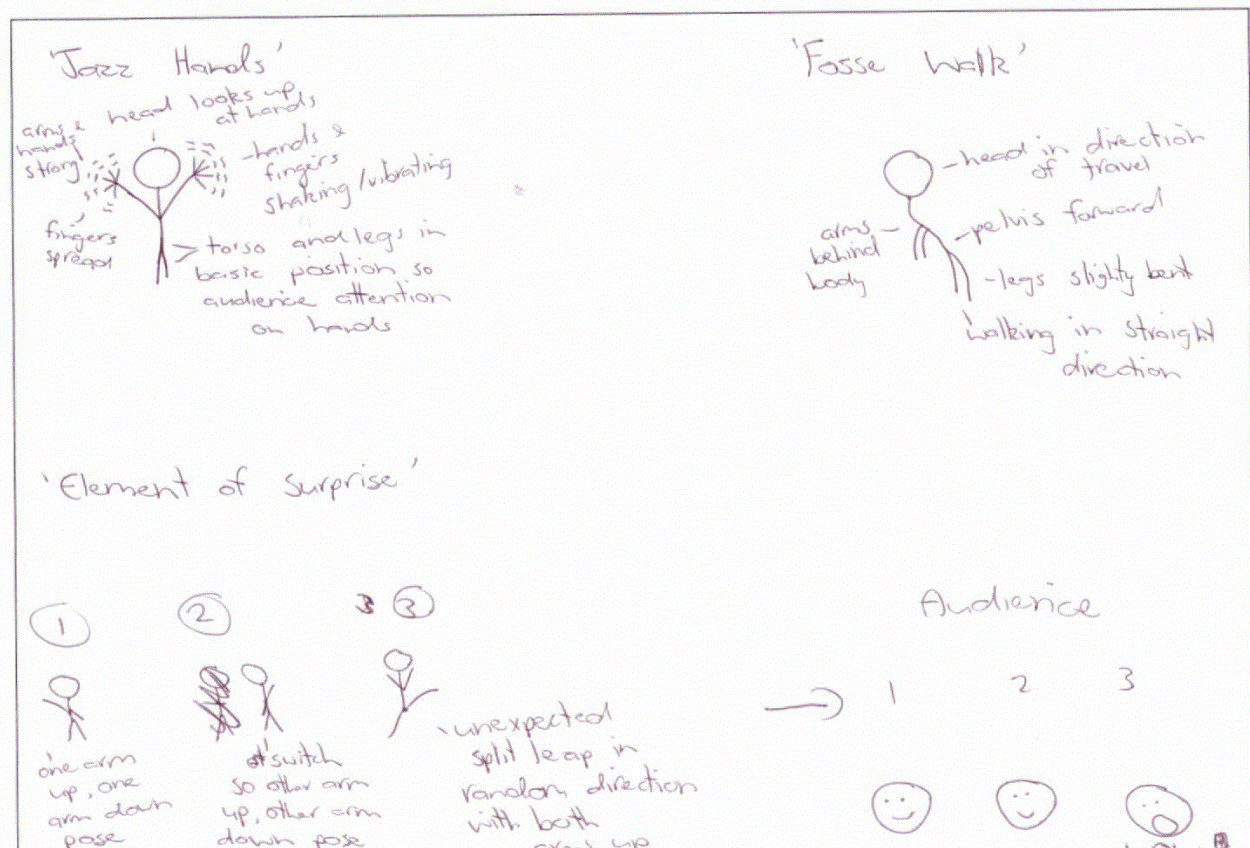 'Jazz Hands'
arms &
hands
strong
head looks up
at hands
-hands &
fingers
shaking/vibrating
fingers
spread
torso and legs in
basic position so
audience attention
on hands
'Fosse Walk'
-head in direction
of travel
arms -
behind
body
-pelvis forward
-legs slighty bent
walking in straight
direction
'Element of Surprise'
1
2
3 3
one arm
up, one
arm down
pose
switch
so other arm
up, other arm
down pose
unexpected
split leap in
random direction
with both
arms up
Audience
1
2
3